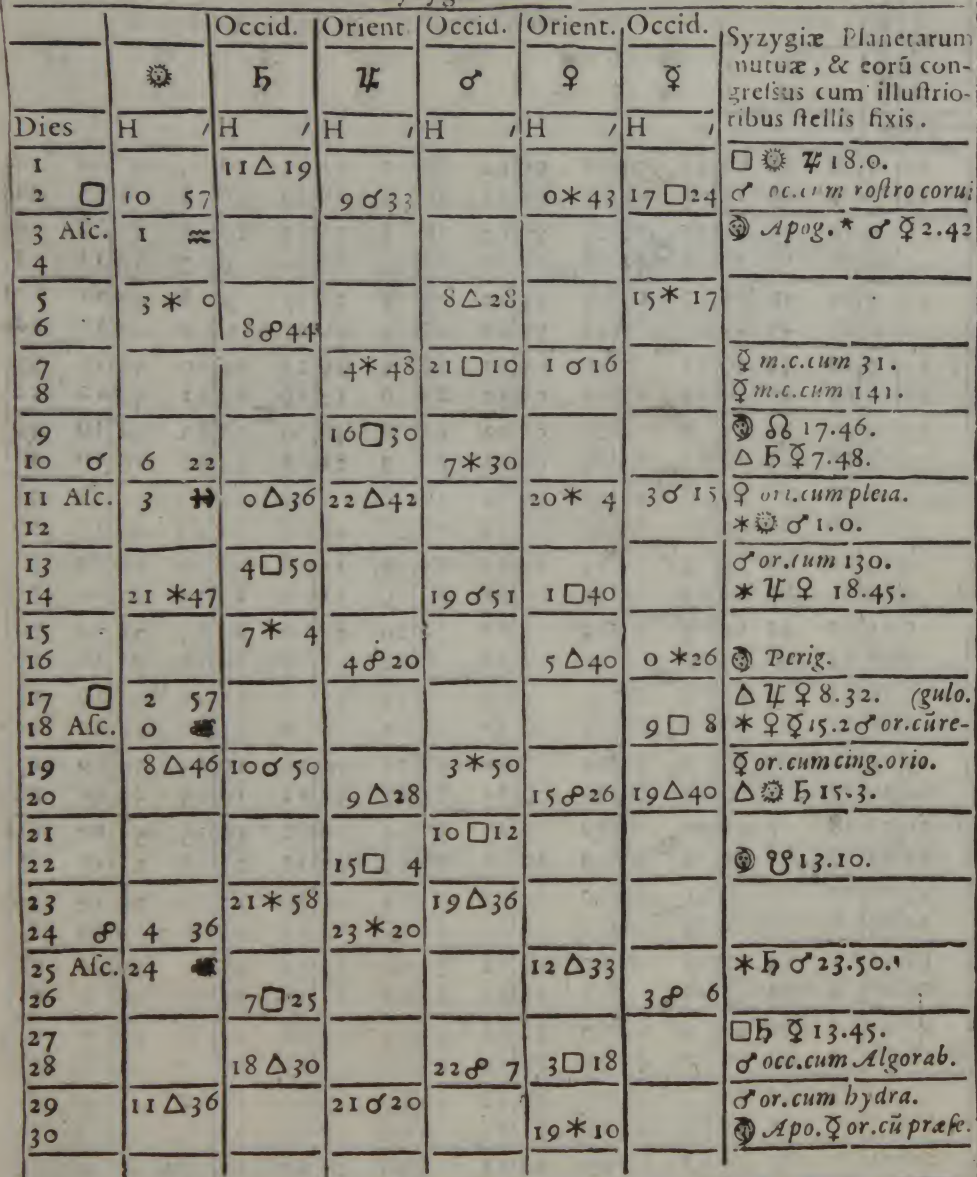 Occid. Orient. Occid. Orient. Occid. Syzygiæ Planetarum
☉ ♄ ♃ ♂ ♀ ☿ mutuæ, & eorũ con-
greſsus cum illuſtrio-
Dies H ′ H ′ H ′ H ′ H ′ H ′ ribus ſtellis fixis.
1 11 △ 19 □ ☉ ♃ 18.0.
2 □ 10 57 9 ☌ 33 0 ✶ 43 17 □ 24 ♂ oc.cum roſtro corui
3 Aſc. 1 ♒ ☽ Apog. ✶ ♂ ☿ 2.42
4
5 3 ✶ 0 8 △ 28 15 ✶ 17
6 8 ☍ 44
7 4 ✶ 48 21 □ 10 1 ☌ 16 ☿ m.c.cum 31.
8 ☿ m.c.cum 141.
9 16 □ 30 ☽ ☊ 17.46.
10 ☌ 6 22 7 ✶ 30 △ ♄ ☿ 7.48.
11 Aſc. 3 ♓ 0 △ 36 22 △ 42 20 ✶ 4 3 ☌ 15 ♀ ori.cum pleia.
12 ✶ ☉ ♂ 1.0.
13 4 □ 50 ♂ or.cum 130.
14 21 ✶ 47 19 ☌ 51 1 □ 40 ✶ ♃ ♀ 18.45.
15 7 ✶ 4
16 4 ☍ 20 5 △ 40 0 ✶ 26 ☽ Perig.
17 □ 2 57 △ ♃ ♀ 8.32. (gulo.
18 Aſc. 0 9 □ 8 ✶ ♀ ☿ 15.2 ♂ or.cũ re-
19 8 △ 46 10 ☌ 50 3 ✶ 50 ☿ or.cum cing.orio.
20 9 △ 28 15 ☍ 26 19 △ 40 △ ☉ ♄ 15.3.
21 10 □ 12
22 15 □ 4 ☽ ☋ 13.10.
23 21 ✶ 58 19 △ 36
24 ☍ 4 36 23 ✶ 20
25 Aſc. 24 12 △ 33 ✶ ♄ ♂ 23.50.
26 7 □ 25 3 ☍ 6
27 □ ♄ ☿ 13.45.
28 18 △ 30 22 ☍ 7 3 □ 18 ♂ occ.cum Algorab.
29 11 △ 36 21 ☌ 20 ♂ or.cum hydra.
30 19 ✶ 10 ☽ Apo. ☿ or.cũ præſe.